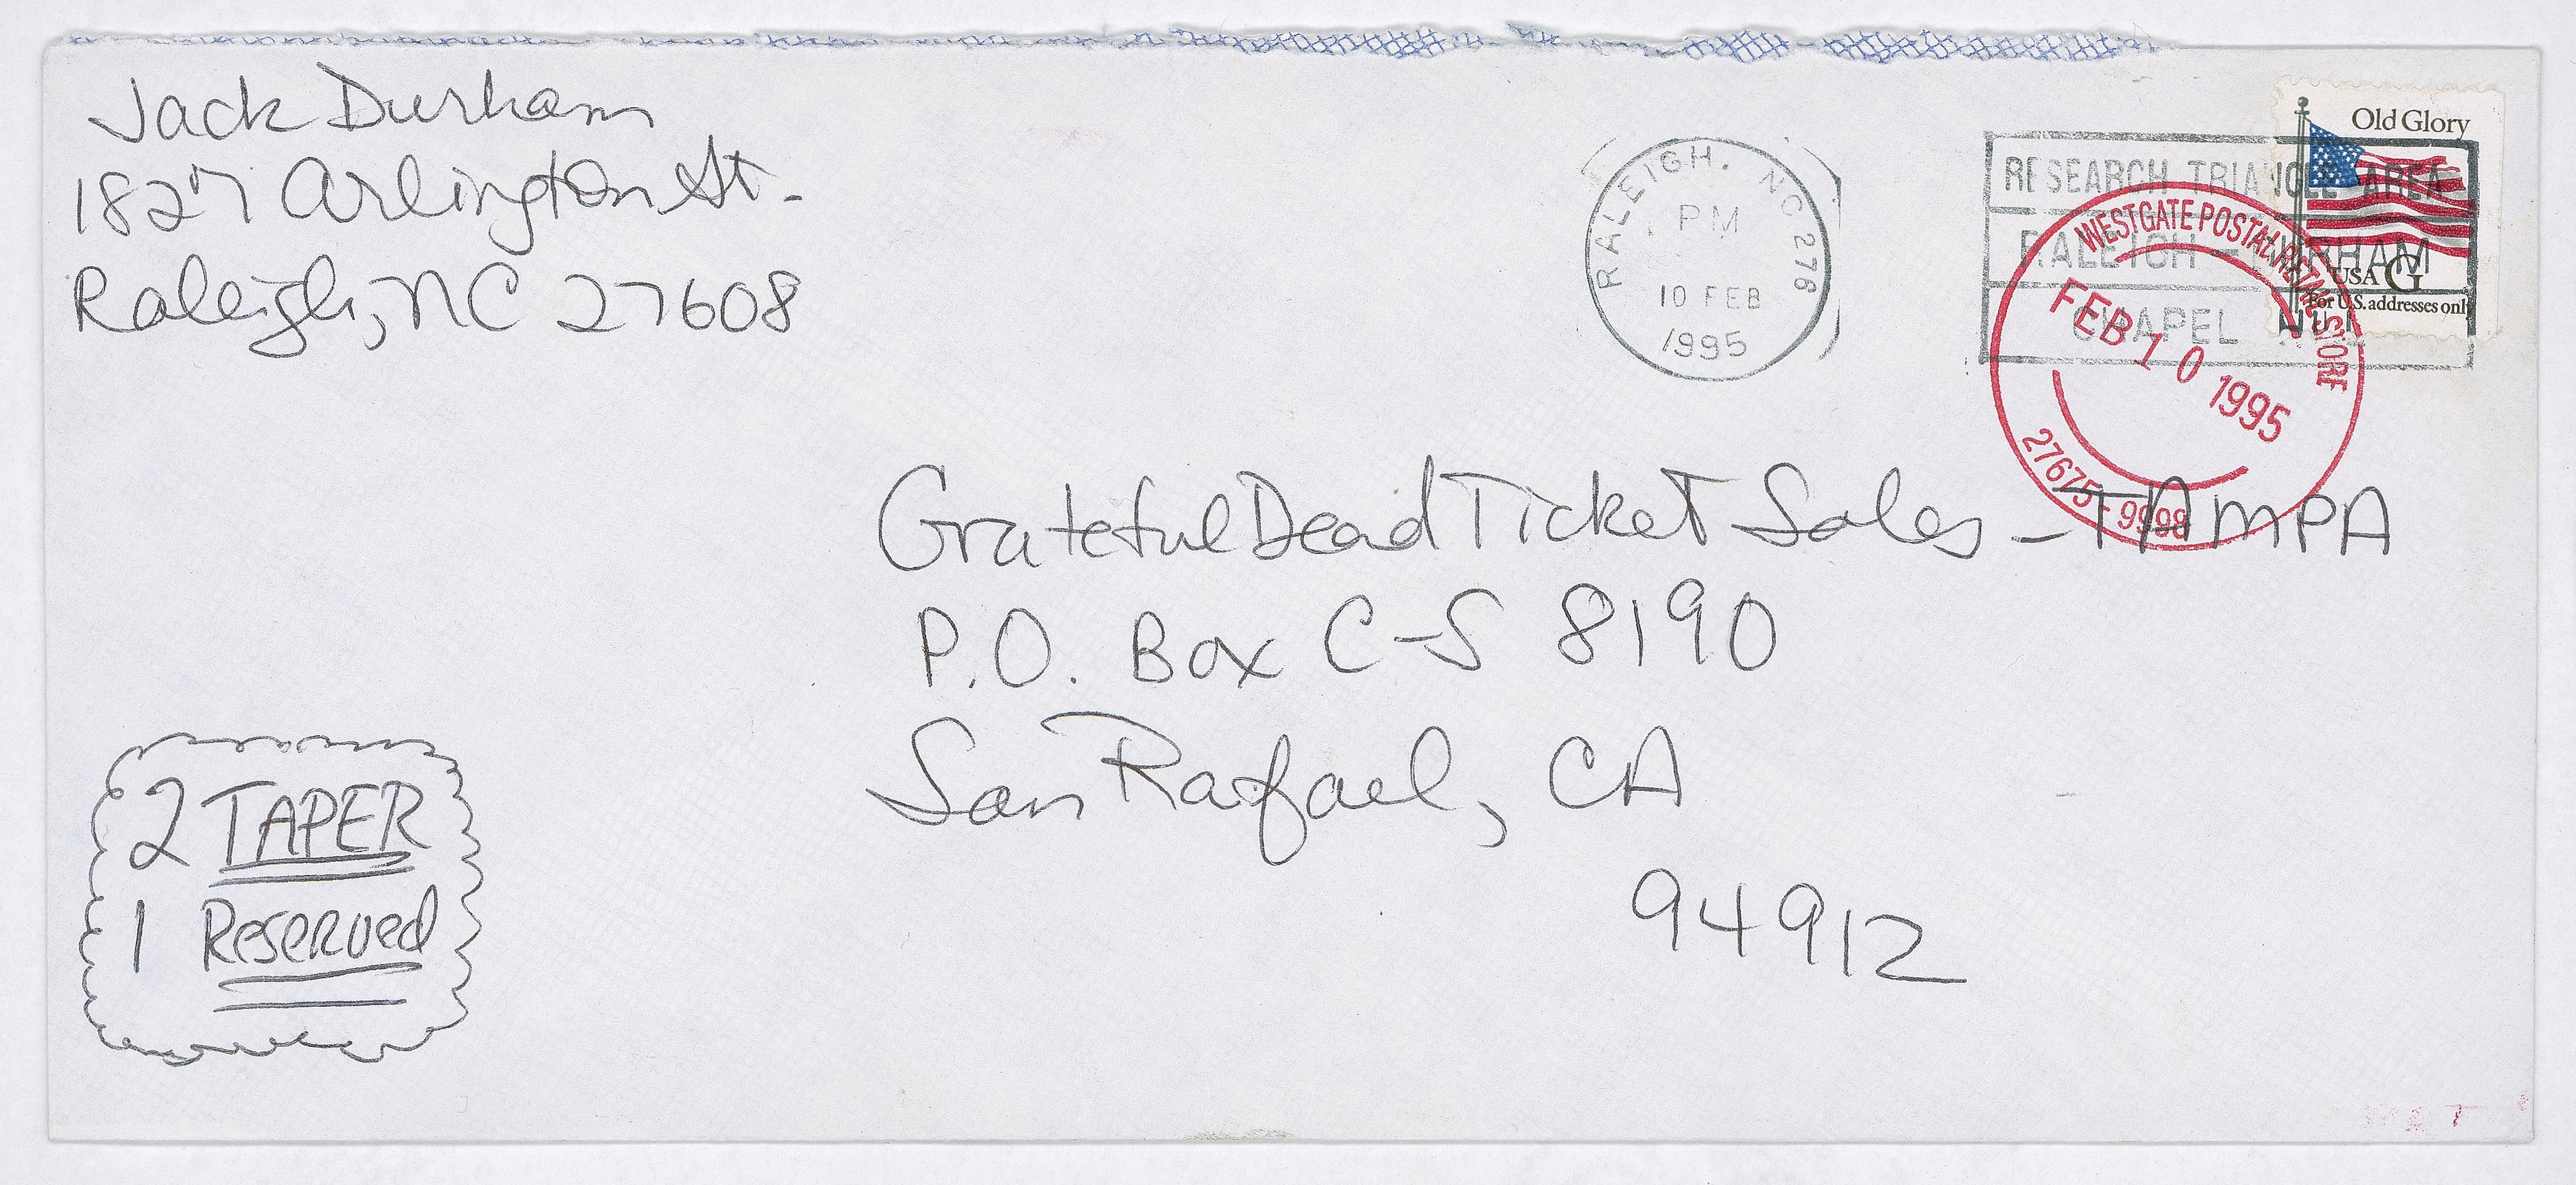 Jack Durham
1827 Arlington St.
Raleigh, NC 27608
RALEIGH, NC 276
PM
10 FEB
1995
RESEARCH TRIANGLE AREA
RALEIGH - DURHAM
CHAPEL HILL
Old Glory
USA G
For U.S. addresses only
WESTGATE POSTAL RETAIL STORE
FEB 10 1995
27675-9998
Grateful Dead Ticket Sales - TAMPA
P.O. Box C-S 8190
San Rafael, CA
94912
2 TAPER
1 Reserved